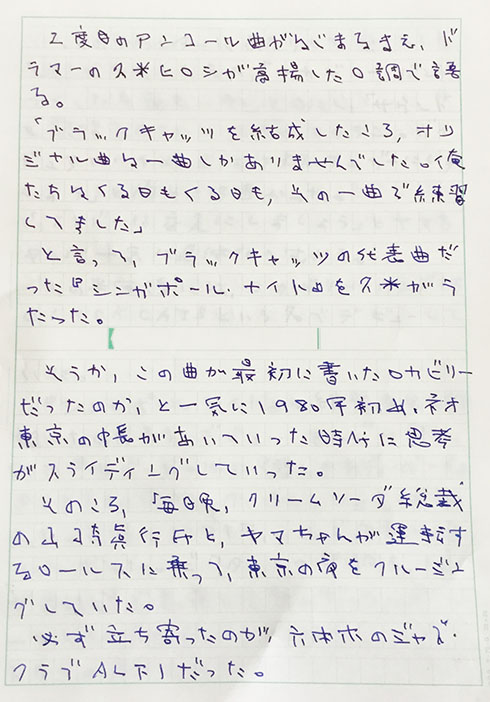 2度目のアンコール曲がはじまるまえ、ド
ラマーの久米ヒロシが高揚した口調で語
る。
「ブラックキャッツを結成したころ、オリ
ジナル曲は一曲しかありませんでした。俺
たちはくる日もくる日も、その一曲で練習
してました」
と言って、ブラックキャッツの代表曲だ
った『シンガポール・ナイト』を久米がう
たった。
そうか、この曲が最初に書いたロカビリー
だったのか、と一気に1980年初め、ネオ
東京の幕があいていった時代に思考
がスライディングしていった。
そのころ、毎日晩、クリームソーダ総裁
の山崎眞行氏と、ヤマちゃんが運転す
るロールスに乗って、東京の夜をクルージン
グしていた。
必ず立ち寄ったのが、六本木のジャズ・
クラブALFIだった。